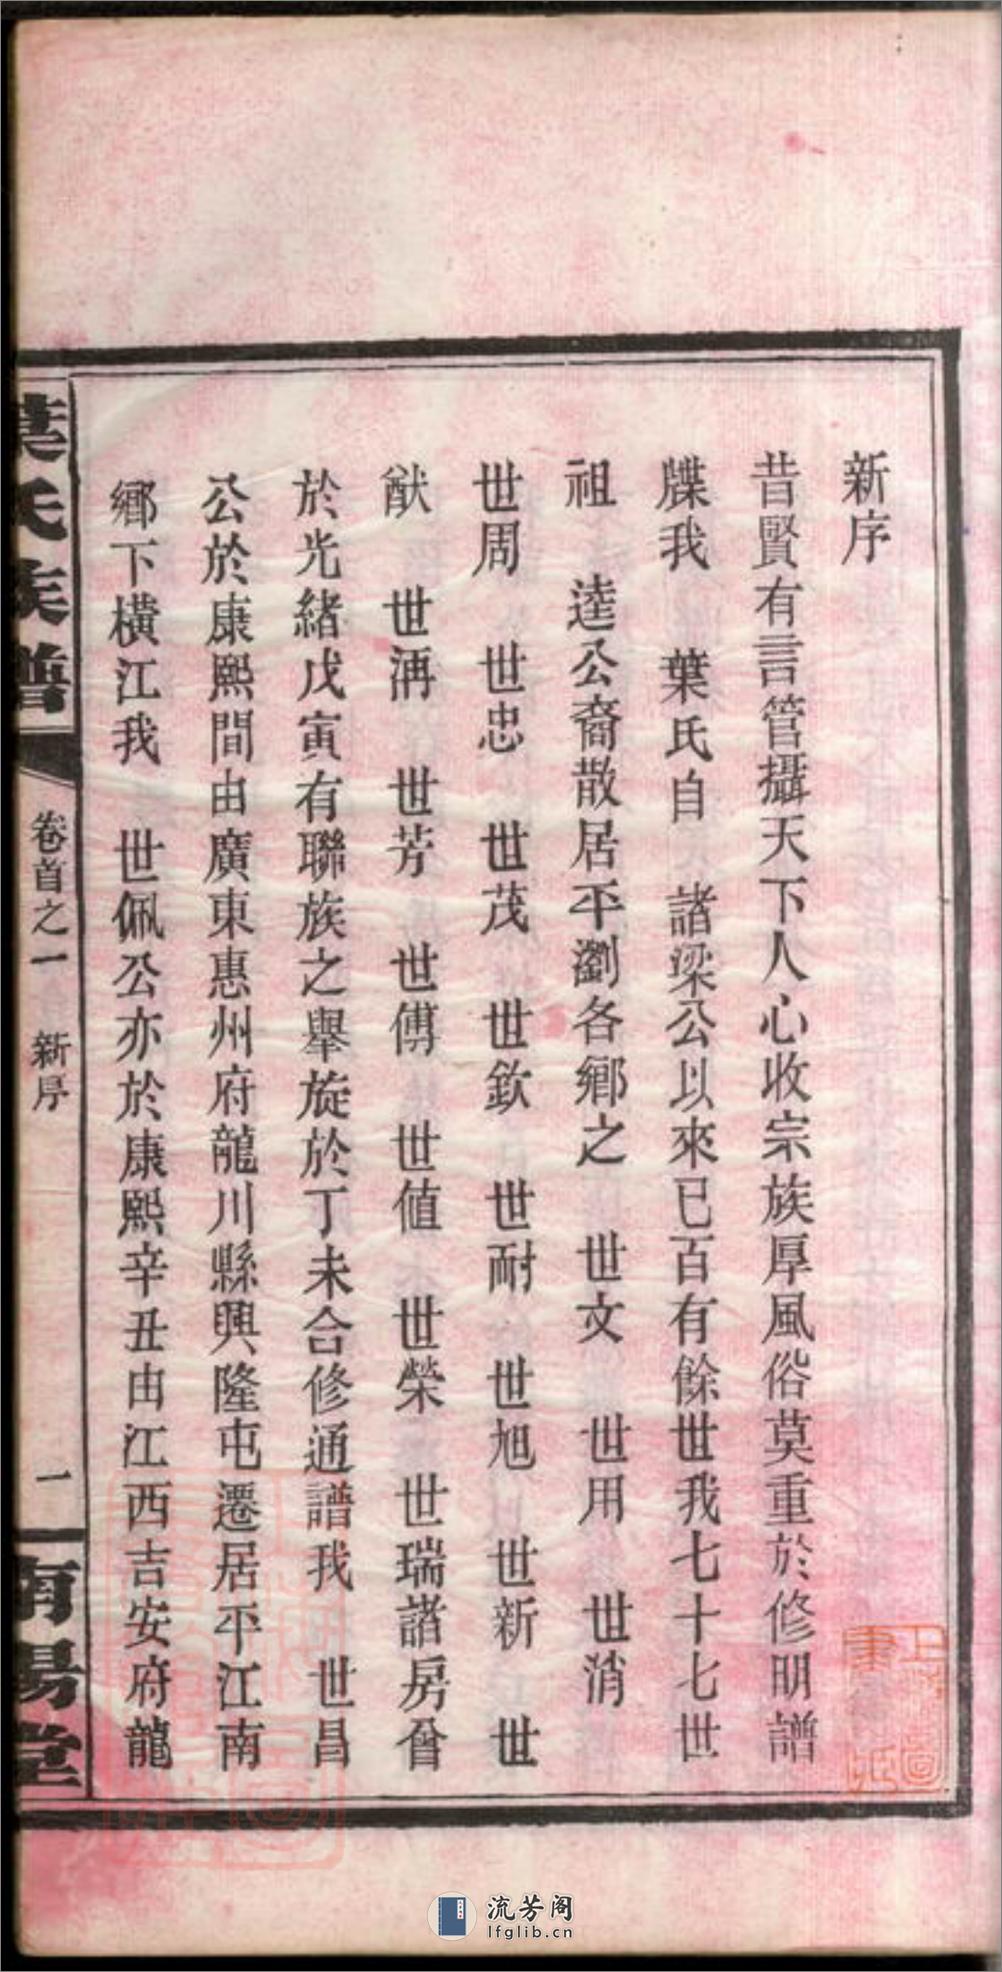 新序
昔賢有言管攝天下人心收宗族厚風俗莫重於修明譜
牒我 葉氏自 諸梁公以來已百有餘世我七十七世
祖 逵公裔散居平瀏各鄉之 世文 世用 世消
世周 世忠 世茂 世欽 世耐 世旭 世新 世
猷 世洅 世芳 世傅 世値 世榮 世瑞諸房曾
於光緒戊寅有聯族之舉旋於丁未合修通譜我 世昌
公於康熙間由廣東惠州府龍川縣興隆屯遷居平江南
鄉下橫江我 世佩公亦於康熙辛丑由江西吉安府龍
葉氏族譜
卷首之一 新序
一
南陽堂
流芳阁
lfglib.cn